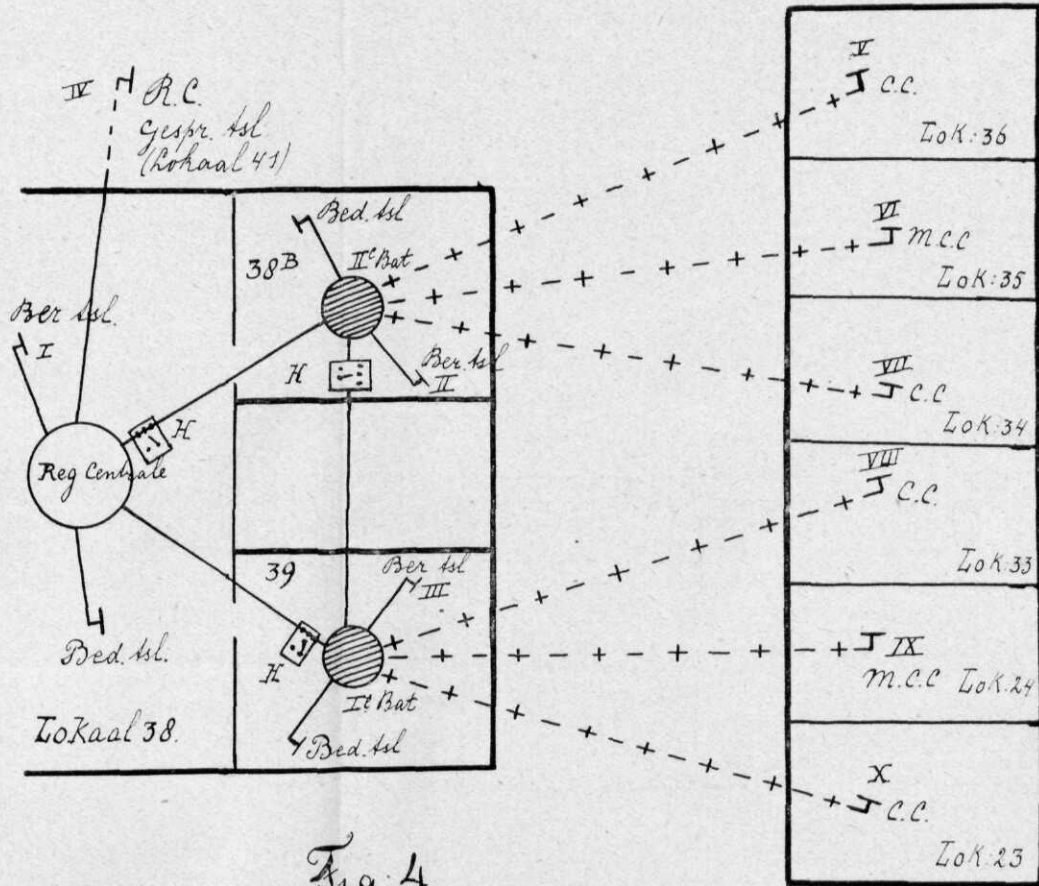 IV
R.C.
Gespr. tsl
(Lokaal 41)
Ber tsl.
I
Reg Centrale
H
Bed. tsl.
Lokaal 38.
Bed. tsl
38B
IIe Bat
Ber. tsl
II
H
39
Ber tsl
III
H
Ie Bat
Bed. tsl
V
C.C.
Lok: 36
VI
M.C.C
Lok: 35
VII
C.C
Lok: 34
VIII
C.C.
Lok: 33
IX
M.C.C
Lok: 24
X
C.C.
Lok: 23
Fig. 4